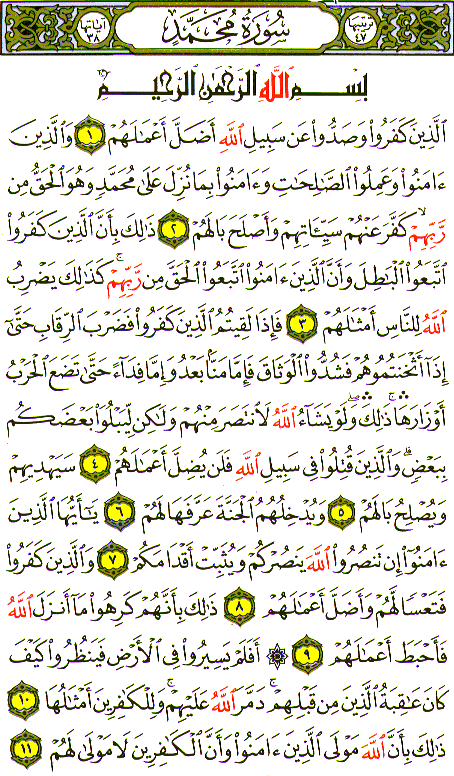 ترتيبها ٤٧ سُورَةُ مُحَمَّدٍ آياتها ٣٨
بِسْمِ اللَّهِ الرَّحْمَٰنِ الرَّحِيمِ
ٱلَّذِينَ كَفَرُوا۟ وَصَدُّوا۟ عَن سَبِيلِ ٱللَّهِ أَضَلَّ أَعْمَٰلَهُمْ ١ وَٱلَّذِينَ
ءَامَنُوا۟ وَعَمِلُوا۟ ٱلصَّٰلِحَٰتِ وَءَامَنُوا۟ بِمَا نُزِّلَ عَلَىٰ مُحَمَّدٍ وَهُوَ ٱلْحَقُّ مِن
رَّبِّهِمْ ۙ كَفَّرَ عَنْهُمْ سَيِّـَٔاتِهِمْ وَأَصْلَحَ بَالَهُمْ ٢ ذَٰلِكَ بِأَنَّ ٱلَّذِينَ كَفَرُوا۟
ٱتَّبَعُوا۟ ٱلْبَٰطِلَ وَأَنَّ ٱلَّذِينَ ءَامَنُوا۟ ٱتَّبَعُوا۟ ٱلْحَقَّ مِن رَّبِّهِمْ ۚ كَذَٰلِكَ يَضْرِبُ
ٱللَّهُ لِلنَّاسِ أَمْثَٰلَهُمْ ٣ فَإِذَا لَقِيتُمُ ٱلَّذِينَ كَفَرُوا۟ فَضَرْبَ ٱلرِّقَابِ حَتَّىٰٓ
إِذَآ أَثْخَنتُمُوهُمْ فَشُدُّوا۟ ٱلْوَثَاقَ فَإِمَّا مَنًّۢا بَعْدُ وَإِمَّا فِدَآءً حَتَّىٰ تَضَعَ ٱلْحَرْبُ
أَوْزَارَهَا ۚ ذَٰلِكَ ۖ وَلَوْ يَشَآءُ ٱللَّهُ لَٱنتَصَرَ مِنْهُمْ وَلَٰكِن لِّيَبْلُوَا۟ بَعْضَكُم
بِبَعْضٍ ۗ وَٱلَّذِينَ قُتِلُوا۟ فِى سَبِيلِ ٱللَّهِ فَلَن يُضِلَّ أَعْمَٰلَهُمْ ٤ سَيَهْدِيهِمْ
وَيُصْلِحُ بَالَهُمْ ٥ وَيُدْخِلُهُمُ ٱلْجَنَّةَ عَرَّفَهَا لَهُمْ ٦ يَٰٓأَيُّهَا ٱلَّذِينَ
ءَامَنُوٓا۟ إِن تَنصُرُوا۟ ٱللَّهَ يَنصُرْكُمْ وَيُثَبِّتْ أَقْدَامَكُمْ ٧ وَٱلَّذِينَ كَفَرُوا۟
فَتَعْسًا لَّهُمْ وَأَضَلَّ أَعْمَٰلَهُمْ ٨ ذَٰلِكَ بِأَنَّهُمْ كَرِهُوا۟ مَآ أَنزَلَ ٱللَّهُ
فَأَحْبَطَ أَعْمَٰلَهُمْ ٩ ۞ أَفَلَمْ يَسِيرُوا۟ فِى ٱلْأَرْضِ فَيَنظُرُوا۟ كَيْفَ
كَانَ عَٰقِبَةُ ٱلَّذِينَ مِن قَبْلِهِمْ ۚ دَمَّرَ ٱللَّهُ عَلَيْهِمْ ۖ وَلِلْكَٰفِرِينَ أَمْثَٰلُهَا ١٠
ذَٰلِكَ بِأَنَّ ٱللَّهَ مَوْلَى ٱلَّذِينَ ءَامَنُوا۟ وَأَنَّ ٱلْكَٰفِرِينَ لَا مَوْلَىٰ لَهُمْ ١١